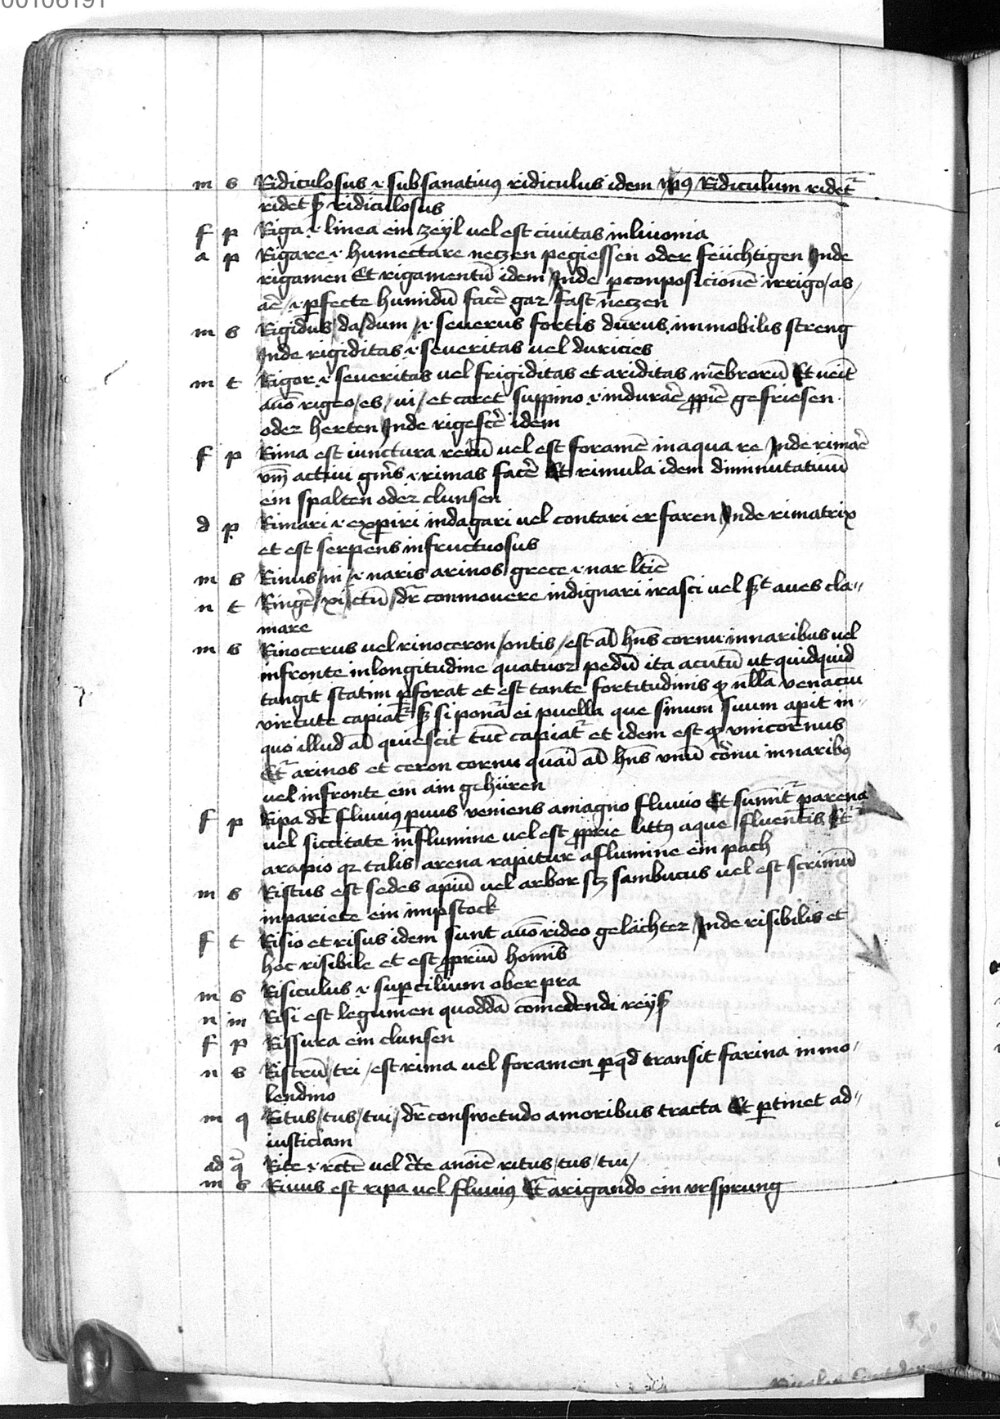 00106191
m s Ridiculosus .i. subsanativus ridiculus idem Ridiculum ridet
ridet ridiculosus
f p Riga .i. linea ein zeÿl vel est civitas in livonia
a p Rigare .i. humectare neczen pegiessen oder feüchtigen Inde
rigamen Et rigamentū idem Inde p conposicionē irrigo/as/
aē/.i. pfecte humidū facē gar fast neczen
m s Rigidus/da/dum/.i. severus fortis durus immobilis streng
Inde rigiditas .i. severitas vel duricies
m t Rigor .i. severitas vel frigiditas et ariditas mēbrorū Et venit
avō rigeo/es/ui/et caret suppino .i. indurarē ppiē gefriesen
oder herten Inde rigescē idem
f p Rima est iunctura rerū vel est foramē in aqua re Inde rimarē
vm activi gnīs .i. rimas facē Et rimula idem diminutativū
ein spalten oder clunsen
d p Rimari .i. experiri indagari vel contari erfaren Inde rimatrix
et est serpens infructuosus
m s Rinus/ni/.i. naris arinos grece .i. nar ltīe
n t Ringē/xi/ctū/dr̄ conmovere indignari irasci vel st aves cla〃
mare
m s Rinocerus vel rinoceron/ontis/est al hn̄s cornu in naribus vel
in fronte in longitudine quatuor pedū ita acutū ut quidquid
tangit statim pforat et est tante fortitudinis qꝫ nulla venacōn
virtute capiat sꝫ si ponat ei puella que sinum suum apit in
quo illud al quiescit tūc capiat et idem est qꝫ unicornus
Et arinos et ceron cornu quasi al hn̄s unū cornu in naribꝫ
vel in fronte ein ain gehüren
f p Ripa dr̄ fluvius pvus veniens amagno fluvio Et sumit p arena
vel siccitate in flumine vel est pprie littꝫ aque fluentis Et
arapio qꝫ talis arena rapitur a flumine ein pach
m s Riscus est sedes apiū vel arbor scꝫ sambucus vel est scrinium
in pariete ein impstock
f t Risio et risus idem sunt avō rideo gelächter Inde risibilis et
hoc risibile et est ppriū hominis
m s Risiculus .i. supcilium ober pra
n in Risi est legumen quoddā comedendi reÿß
f p Rissura ein clunsen
n s Ristrū/tri/est rima vel foramen p qd transit farina in mo/
lendino
m q Ritus/tus/tui/dr̄ conswetudo a moribus tracta Et ptinet ad〃
iusticiam
ad q Rite .i. rctē vel cte anoīe ritus/tus/tui/
m s Rivus est ripa vel fluvius Et arigando ein ursprung